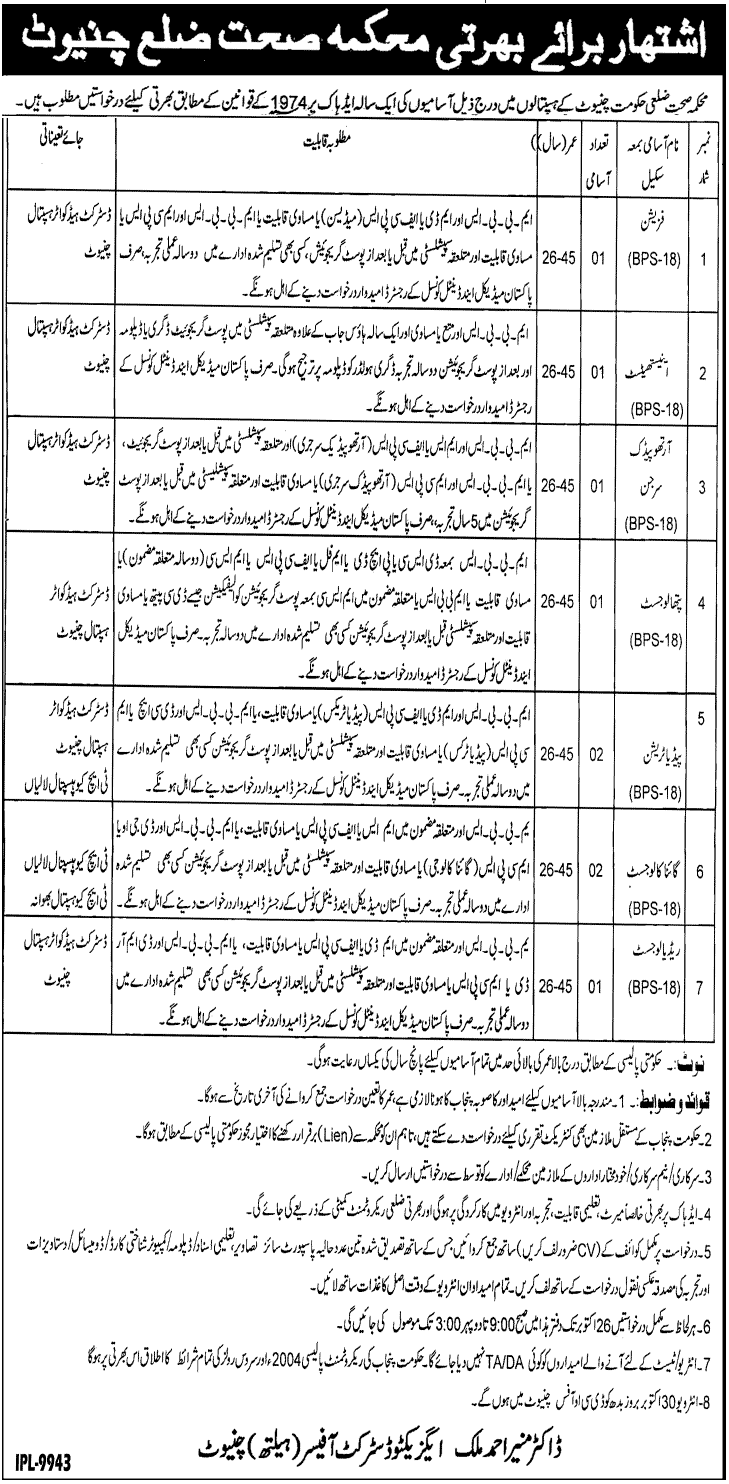 اشتہار برائے بھرتی محکمہ صحت ضلع چنیوٹ
محکمہ صحت ضلعی حکومت چنیوٹ کے ہسپتالوں میں درج ذیل آسامیوں کی ایک سالہ ایڈہاک پر 1974 کے قوانین کے مطابق بھرتی کیلئے درخواستیں مطلوب ہیں۔
نمبر شمار
نام آسامی بمعہ سکیل
تعداد آسامی
عمر (سال))
مطلوبہ قابلیت
جائے تعیناتی
1
فزیشن
(BPS-18)
01
26-45
ایم۔بی۔بی۔ایس اور ایم ڈی یا ایف سی پی ایس (میڈیسن) یا مساوی قابلیت یا ایم۔بی۔بی۔ایس اور ایم سی پی ایس یا
مساوی قابلیت اور متعلقہ سپیشلسٹی میں قبل یا بعد از پوسٹ گریجویشن، کسی بھی تسلیم شدہ ادارے میں دو سالہ عملی تجربہ، صرف
پاکستان میڈیکل اینڈ ڈینٹل کونسل کے رجسٹرڈ امیدوار درخواست دینے کے اہل ہونگے۔
ڈسٹرکٹ ہیڈ کوارٹر ہسپتال
چنیوٹ
2
اینستھیٹسٹ
(BPS-18)
01
26-45
ایم۔بی۔بی۔ایس اور متبع یا مساوی اور ایک سالہ ہاؤس جاب کے علاوہ متعلقہ سپیشلسٹی میں پوسٹ گریجوئیٹ ڈگری یا ڈپلومہ
اور بعد از پوسٹ گریجوئیشن دو سالہ تجربہ ڈگری ہولڈر کو ڈپلومہ پر ترجیح ہوگی۔ صرف پاکستان میڈیکل اینڈ ڈینٹل کونسل کے
رجسٹرڈ امیدوار درخواست دینے کے اہل ہونگے۔
ڈسٹرکٹ ہیڈ کوارٹر ہسپتال
چنیوٹ
3
آرتھوپیڈک
سرجن
(BPS-18)
01
26-45
ایم۔بی۔بی۔ایس اور ایم ایس یا ایف سی پی ایس (آرتھوپیڈیک سرجری) اور متعلقہ سپیشلسٹی میں قبل یا بعد از پوسٹ گریجوئیٹ،
یا ایم۔بی۔بی۔ایس اور ایم سی پی ایس (آرتھوپیڈک سرجری) یا مساوی قابلیت اور متعلقہ سپیشلیسٹی میں قبل یا بعد از پوسٹ
گریجوئیشن میں 5 سال تجربہ، صرف پاکستان میڈیکل اینڈ ڈینٹل کونسل کے رجسٹرڈ امیدوار درخواست دینے کے اہل ہونگے۔
ڈسٹرکٹ ہیڈ کوارٹر ہسپتال
چنیوٹ
4
پتھالوجسٹ
(BPS-18)
01
26-45
ایم۔بی۔بی۔ایس بمعہ ڈی ایس سی یا پی ایچ ڈی یا ایم فل یا ایف سی پی ایس یا ایم ایس سی (دو سالہ متعلقہ مضمون) یا
مساوی قابلیت یا ایم بی بی ایس یا متعلقہ مضمون میں ایم ایس سی بمعہ پوسٹ گریجوئیشن کوالیفکیشن جیسے ڈی سی پیتھ یا مساوی
قابلیت اور متعلقہ سپیشلسٹی قبل یا بعد از پوسٹ گریجوئیشن کسی بھی تسلیم شدہ ادارے میں دو سالہ تجربہ۔ صرف پاکستان میڈیکل
اینڈ ڈینٹل کونسل کے رجسٹرڈ امیدوار درخواست دینے کے اہل ہونگے۔
ڈسٹرکٹ ہیڈ کوارٹر
ہسپتال چنیوٹ
5
پیڈیاٹریشن
(BPS-18)
02
26-45
ایم۔بی۔بی۔ایس اور ایم ڈی یا ایف سی پی ایس (پیڈیاٹریکس) یا مساوی قابلیت، یا ایم۔بی۔بی۔ایس اور ڈی سی ایچ یا ایم
سی پی ایس (پیڈیاٹرکس) یا مساوی قابلیت اور متعلقہ سپیشلسٹی میں قبل یا بعد از پوسٹ گریجوئیشن کسی بھی تسلیم شدہ ادارے
میں دو سالہ عملی تجربہ۔ صرف پاکستان میڈیکل اینڈ ڈینٹل کونسل کے رجسٹرڈ امیدوار درخواست دینے کے اہل ہونگے۔
ڈسٹرکٹ ہیڈ کوارٹر
ہسپتال چنیوٹ
ٹی ایچ کیو ہسپتال لالیاں
6
گائناکالوجسٹ
(BPS-18)
02
26-45
یم۔بی۔بی۔ایس اور متعلقہ مضمون میں ایم ایس یا ایف سی پی ایس یا مساوی قابلیت، یا ایم۔بی۔بی۔ایس اور ڈی جی او یا
ایم سی پی ایس (گائناکالوجی) یا مساوی قابلیت اور متعلقہ سپیشلسٹی میں قبل یا بعد از پوسٹ گریجوئیشن کسی بھی تسلیم شدہ
ادارے میں دو سالہ عملی تجربہ۔ صرف پاکستان میڈیکل اینڈ ڈینٹل کونسل کے رجسٹرڈ امیدوار درخواست دینے کے اہل ہونگے۔
ٹی ایچ کیو ہسپتال لالیاں
ٹی ایچ کیو ہسپتال بھوانہ
7
ریڈیالوجسٹ
(BPS-18)
01
26-45
یم۔بی۔بی۔ایس اور متعلقہ مضمون میں ایم ڈی یا ایف سی پی ایس یا مساوی قابلیت، یا ایم۔بی۔بی۔ایس اور ڈی ایم آر
ڈی یا ایم سی پی ایس یا مساوی قابلیت اور متعلقہ سپیشلسٹی میں قبل یا بعد از پوسٹ گریجوئیشن کسی بھی تسلیم شدہ ادارے میں
دو سالہ عملی تجربہ۔ صرف پاکستان میڈیکل اینڈ ڈینٹل کونسل کے رجسٹرڈ امیدوار درخواست دینے کے اہل ہونگے۔
ڈسٹرکٹ ہیڈ کوارٹر ہسپتال
چنیوٹ
نوٹ:۔ حکومتی پالیسی کے مطابق درج بالا عمر کی بالائی حد میں تمام آسامیوں کیلئے پانچ سال کی یکساں رعایت ہوگی۔
قوائد و ضوابط:۔ 1۔ مندرجہ بالا آسامیوں کیلئے امیدوار کا صوبہ پنجاب کا ہونا لازمی ہے، عمر کا تعین درخواست جمع کروانے کی آخری تاریخ سے ہوگا۔
2۔ حکومت پنجاب کے مستقل ملازمین بھی کنٹریکٹ تقرری کیلئے درخواست دے سکتے ہیں، تاہم ان کو محکمہ سے (Lien) برقرار رکھنے کا اختیار مجوز حکومتی پالیسی کے مطابق ہوگا۔
3۔ سرکاری/نیم سرکاری/خود مختار اداروں کے ملازمین محکمے/ادارے کو توسط سے درخواستیں ارسال کریں۔
4۔ ایڈہاک پر بھرتی خالصاً میرٹ، تعلیمی قابلیت، تجربہ اور انٹرویو میں کارکردگی پر ہوگی اور بھرتی ضلعی ریکروٹمنٹ کمیٹی کے ذریعے کی جائے گی۔
5۔ درخواست پر مکمل کوائف کے (CV ضرور لف کریں) ساتھ جمع کروائیں جس کے ساتھ تصدیق شدہ تین عدد حالیہ پاسپورٹ سائز تصاویر، تعلیمی اسناد/ڈپلومہ/کمپیوٹر شناختی کارڈ/ڈومیسائل/دستاویزات
اور تجربہ کی مصدقہ عکسی نقول درخواست کے ساتھ لف کریں۔ تمام امیدواران انٹرویو کے وقت اصل کاغذات ساتھ لائیں۔
6۔ ہر لحاظ سے مکمل درخواستیں 26 اکتوبر تک دفتر ہذا میں صبح 9:00 تا دوپہر 3:00 تک موصول کی جائیں گی۔
7۔ انٹرویو/ٹیسٹ کے لئے آنے والے امیدراروں کو کوئی TA/DA نہیں دیا جائے گا۔ حکومت پنجاب کی ریکروٹمنٹ پالیسی 2004ء اور سروس رولز کی تمام شرائط کا اطلاق اس بھرتی پر ہوگا
8۔ انٹرویو 30 اکتوبر بروز بدھ کو ڈی سی او آفس چنیوٹ میں ہوں گے۔
ڈاکٹر منیر احمد ملک ایگزیکٹو ڈسٹرکٹ آفیسر (ہیلتھ) چنیوٹ
IPL-9943